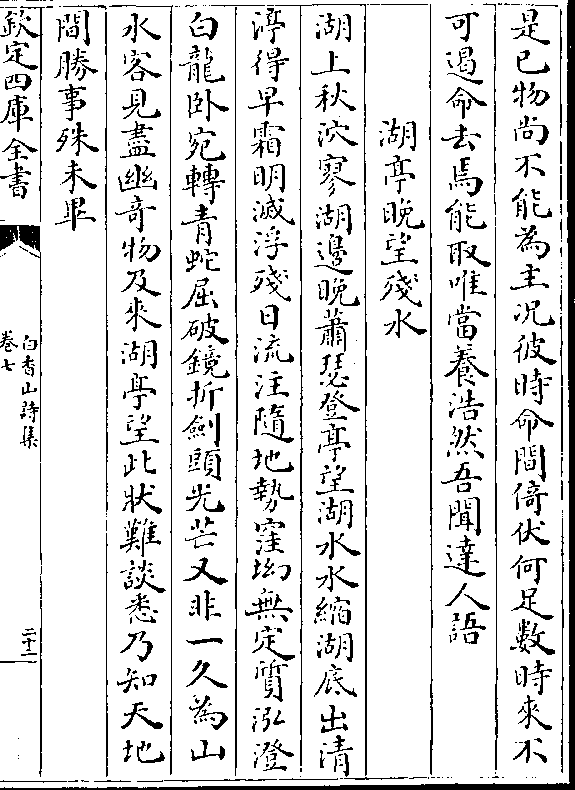 是已物尚不能為主況彼時命間倚伏何足數時來不
可遏命去焉能取唯當養浩然吾聞達人語
湖亭晚望殘水
湖上秋泬寥湖邊晚蕭瑟登亭望湖水水縮湖底出清
渟得早霜明滅浮殘日流注隨地勢窪坳無定質泓澄
白龍卧宛轉青蛇屈破鏡折劍頭光芒又非一久為山
水客見盡幽奇物及來湖亭望此狀難談悉乃知天地
間勝事殊未畢
欽定四庫全書
白香山詩集
卷七
二十二